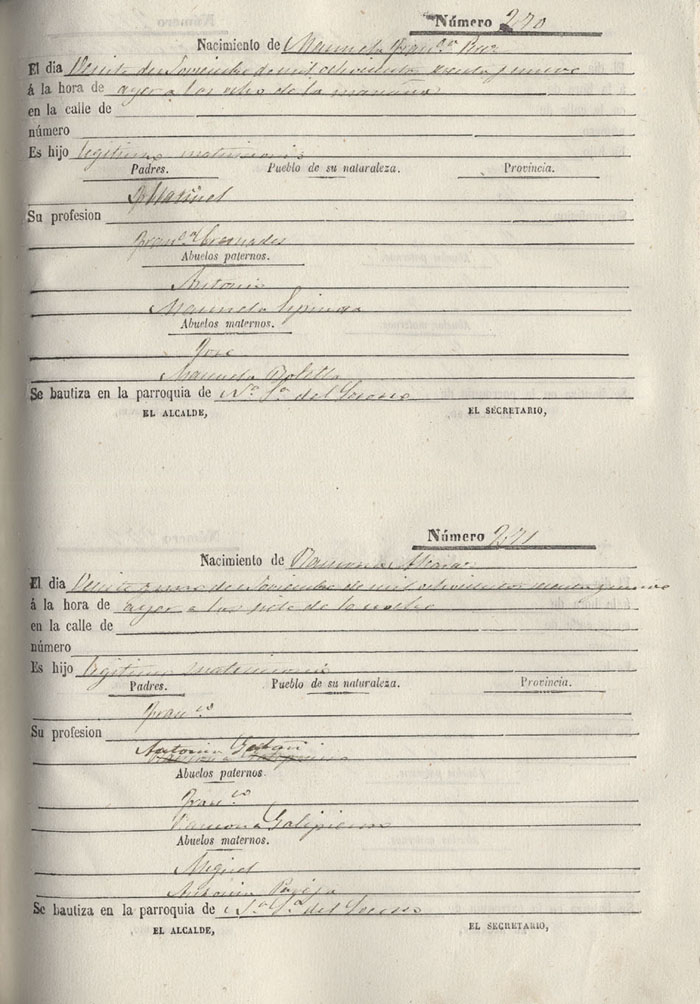 Número 270
Nacimiento de Manuela Fran.ca Ruz
El dia Veinte de Noviembre de mil ochocientos sesenta y nueve
á la hora de ayer a las ocho de la mañana
en la calle de
número
Es hijo legitimo matrimonio
Padres. Pueblo de su naturaleza. Provincia.
Manuel
Su profesion
Fran.ca
Abuelos paternos.
Antonio
Manuela Espinosa
Abuelos maternos.
Jose
Manuela
Se bautiza en la parroquia de N.a S.a del Socorro
EL ALCALDE, EL SECRETARIO,
Número 271
Nacimiento de Ramon
El dia Veinte y uno de Noviembre de mil ochocientos sesenta y nueve
á la hora de ayer a las siete de la noche
en la calle de
número
Es hijo legitimo matrimonio
Padres. Pueblo de su naturaleza. Provincia.
Fran.co
Su profesion
Antonia
Abuelos paternos.
Fran.co
Ramona Galipienso
Abuelos maternos.
Miguel
Antonia
Se bautiza en la parroquia de N.a S.a del Socorro
EL ALCALDE, EL SECRETARIO,